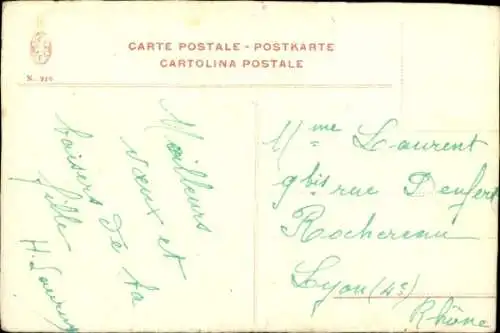 CARTE POSTALE - POSTKARTE
CARTOLINA POSTALE
N. 910
Meilleurs
vœux et
baisers de ta
fille
H. Laurent
Mme Laurent
9 bis rue Denfert
Rochereau
Lyon (4e)
Rhône